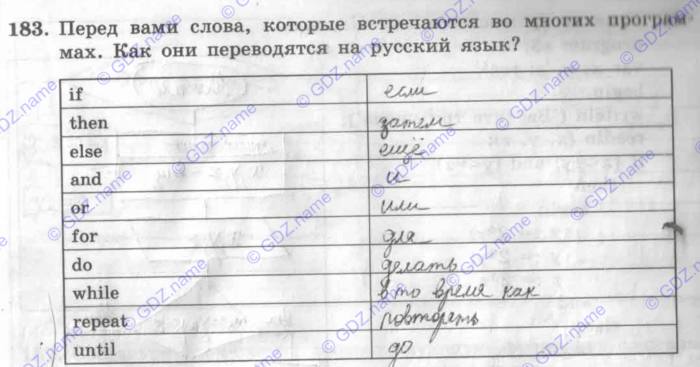 183. Перед вами слова, которые встречаются во многих програм
мах. Как они переводятся на русский язык?
if если
then затем
else ещё
and и
or или
for для
do делать
while в то время как
repeat повторять
until до
© GDZ.name